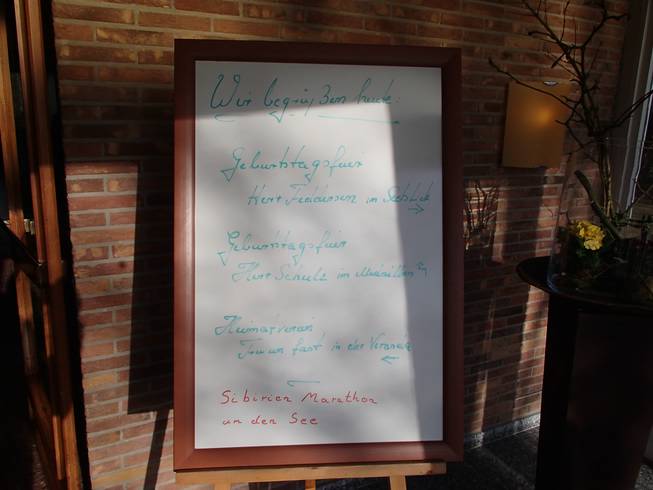 Wir begrüßen heute:
Geburtstagsfeier
Herr Feddersen im Seeblick →
Geburtstagsfeier
Herr Schulz im
Heimatverein
Frau in der Veranda ←
Sibirien Marathon
um den See